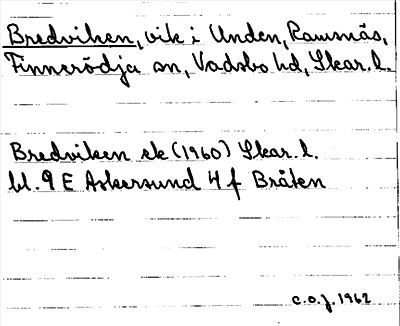 Bredviken, vik i Unden, Ramsnäs,
Finnerödja sn, Vadsbo hd, Skar. l.
Bredviken ek (1960) Skar. l.
bl. 9 E Askersund 4 f Bråten
C.O.J. 1962